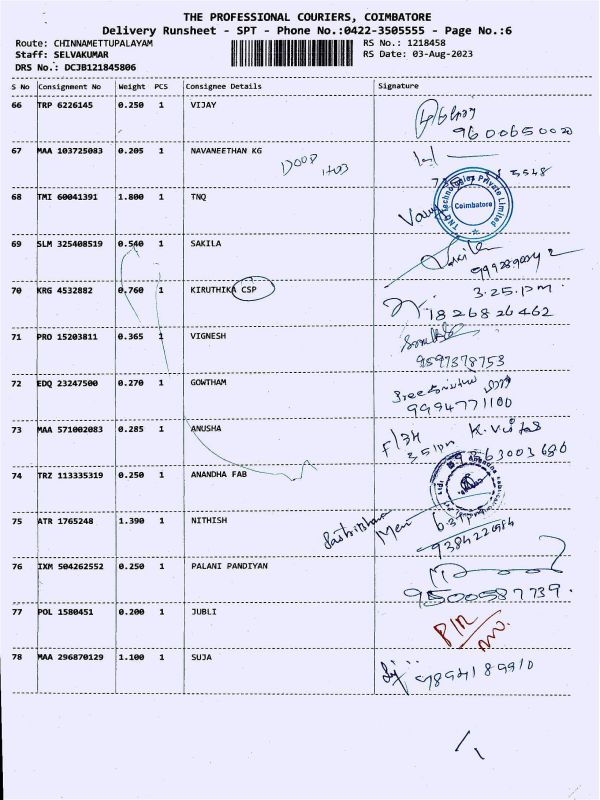 THE PROFESSIONAL COURIERS, COIMBATORE
Delivery Runsheet - SPT - Phone No.:0422-3505555 - Page No.:6
Route: CHINNAMETTUPALAYAM RS No.: 1218458
Staff: SELVAKUMAR RS Date: 03-Aug-2023
DRS No.: DCJB121845806
S No Consignment No Weight PCS Consignee Details Signature
66 TRP 6226145 0.250 1 VIJAY
9600650020
67 MAA 103725083 0.205 1 NAVANEETHAN KG
DOOR
3548
68 TMI 60041391 1.800 1 TNQ
TNQ Technologies Private Limited
Coimbatore
69 SLM 325408519 0.540 1 SAKILA
70 KRG 4532882 0.760 1 KIRUTHIKA CSP 3.25.pm
1826826462
71 PRO 15203811 0.365 1 VIGNESH
9597378753
72 EDQ 23247500 0.270 1 GOWTHAM
9994771100
73 MAA 571002083 0.285 1 ANUSHA
F/34
351pm
63003680
74 TRZ 113335319 0.250 1 ANANDHA FAB
75 ATR 1765248 1.390 1 NITHISH
76 IXM 504262552 0.250 1 PALANI PANDIYAN
9500587739.
77 POL 1580451 0.200 1 JUBLI
78 MAA 296870129 1.100 1 SUJA
9894189910